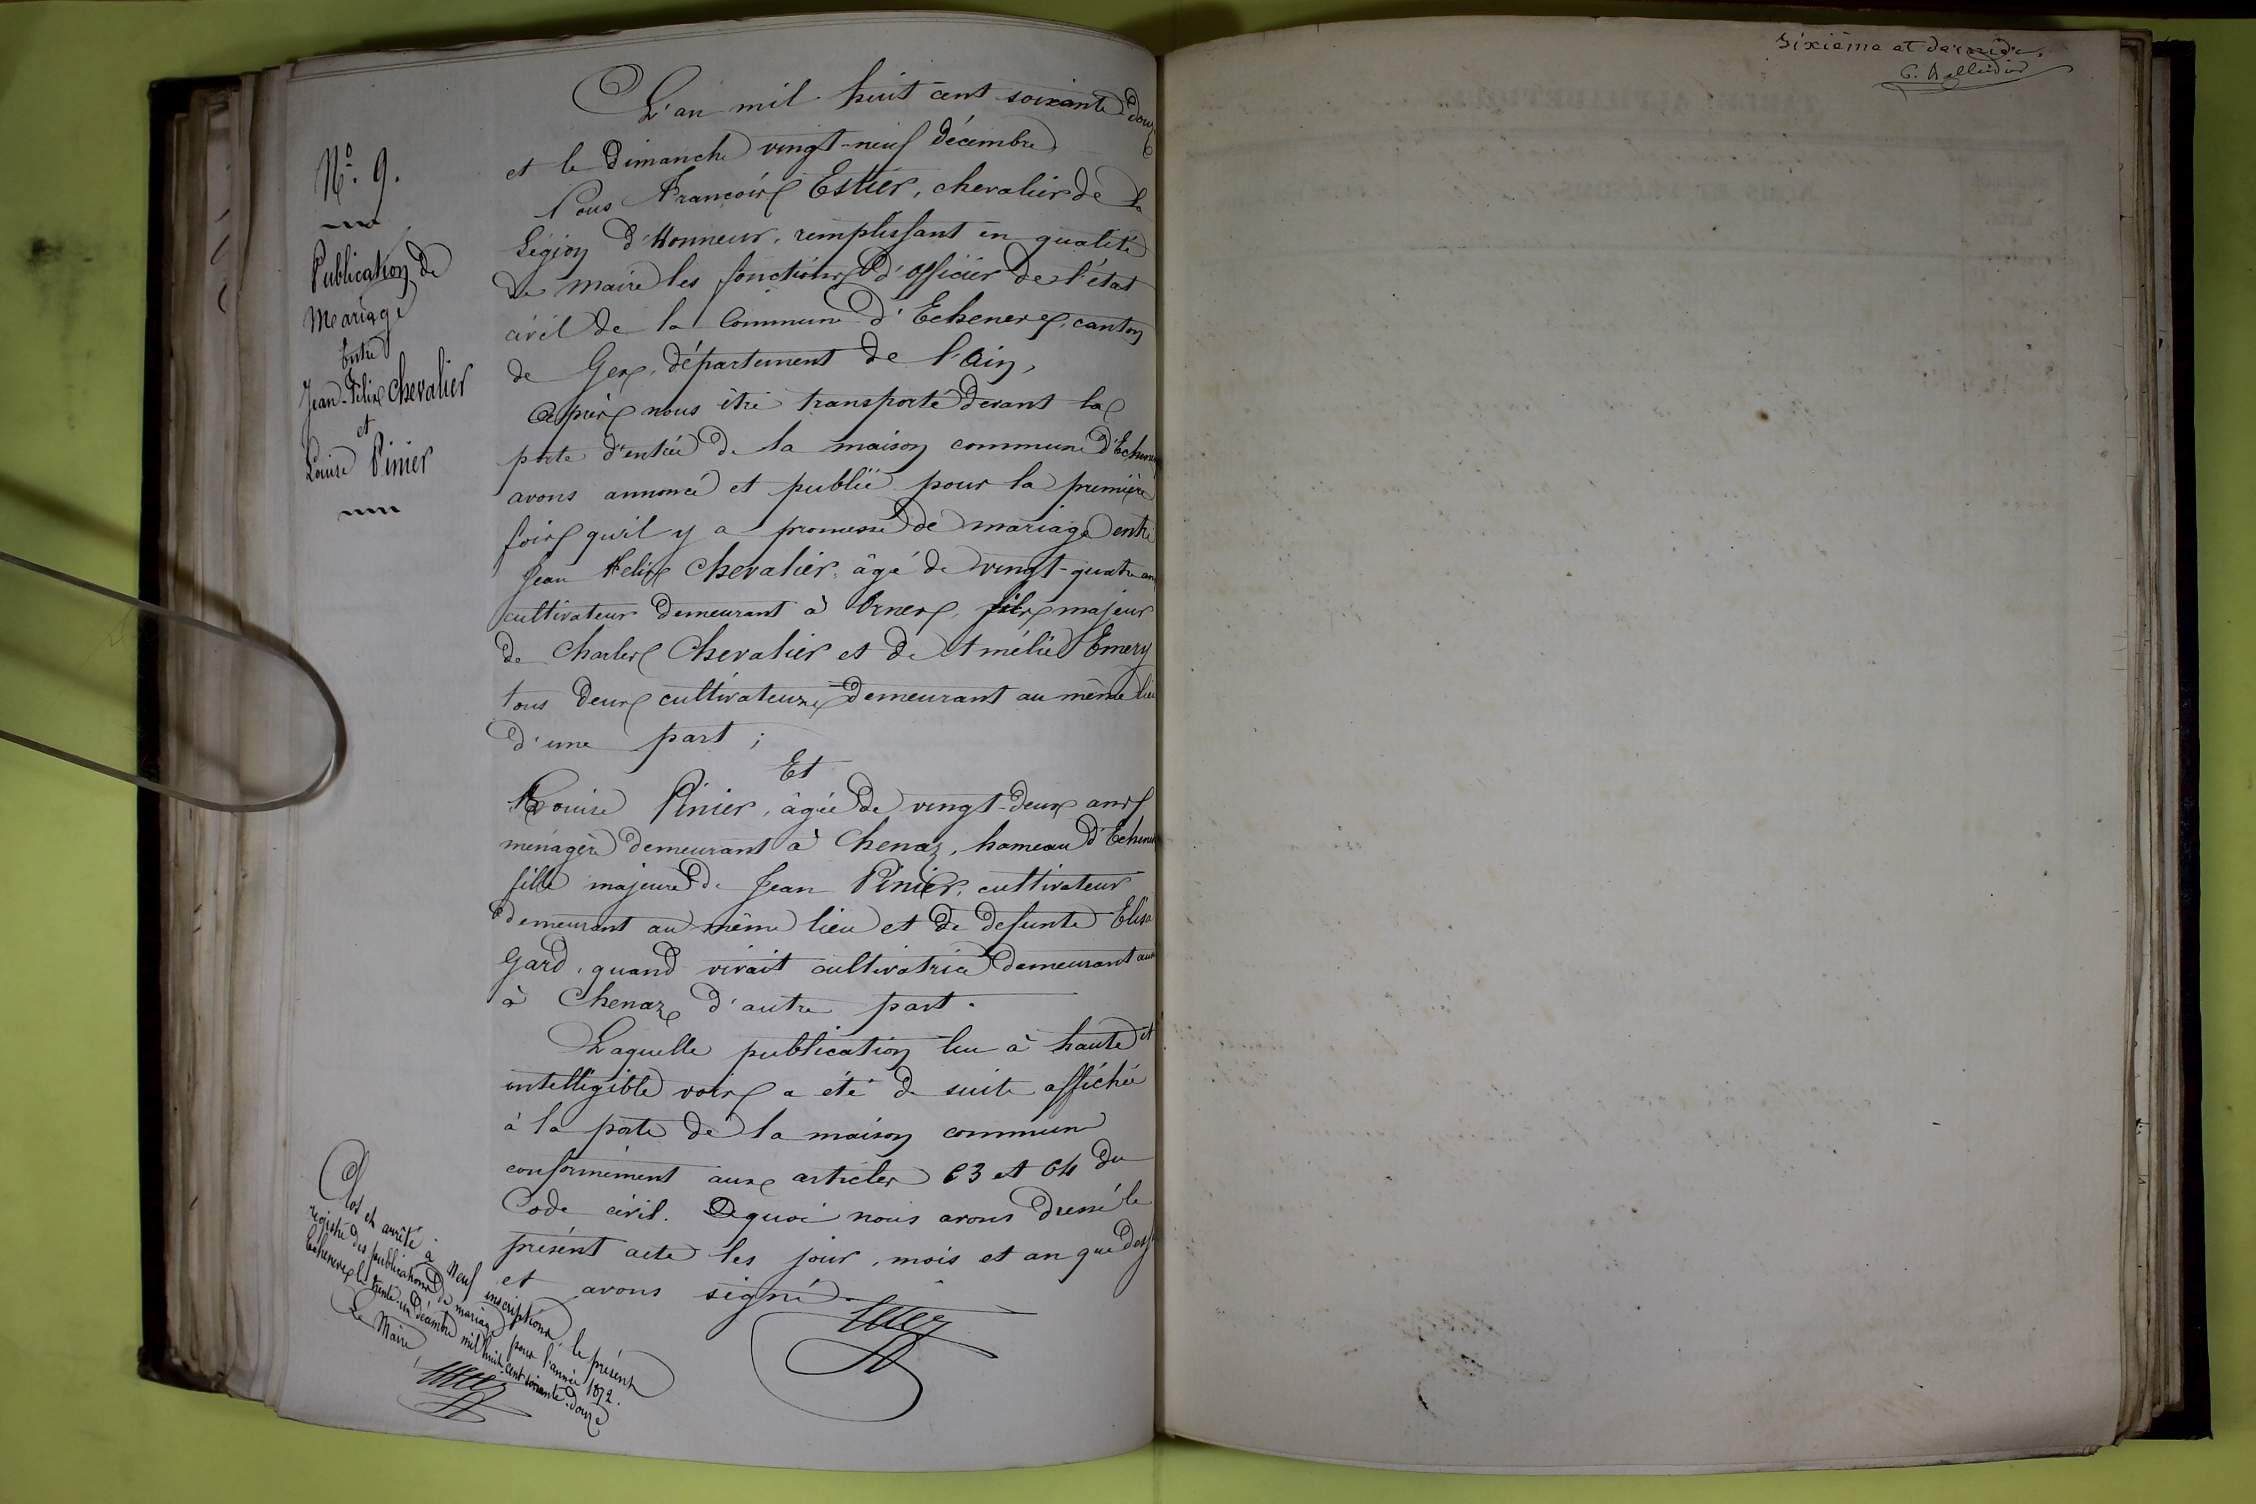 N.o 9.
Publication de
Mariage
Entre
Jean-Félix Chevalier
et
Louise Pinier
L'an mil huit cent soixante douze
et le Dimanche vingt-neuf Décembre
Nous François Estier, chevalier de la
Légion d'Honneur, remplissant en qualité
de Maire les fonctions d'officier de l'état
civil de la Commune d'Echenex, canton
de Gex, département de l'Ain,
Après nous être transporté devant la
porte d'entrée de la maison commune d'Echenex
avons annoncé et publié pour la première
fois qu'il y a promesse de mariage entre
Jean Felix Chevalier, âgé de vingt-quatre ans
cultivateur demeurant à Ornex, fils majeur
de Charles Chevalier et de Amélie Emery
tous deux cultivateurs demeurant au même lieu
d'une part ;
Et
Louise Pinier, âgée de vingt-deux ans
ménagère demeurant à Chenaz, hameau d'Echenex
fille majeure de Jean Pinier, cultivateur
demeurant au même lieu et de defunte Elisa
Gard, quand vivait cultivatrice demeurant aussi
à Chenaz d'autre part.
Laquelle publication lue à haute et
intelligible voix a été de suite affichée
à la porte de la maison commune
conformément aux articles 63 et 64 du
Code civil. De quoi nous avons dressé le
présent acte les jour, mois et an que dessus
et avons signé.
Estier
Clos et arrêté à neuf inscriptions, le présent
registre des publications de mariage pour l'année 1872.
Echenex le trente-un décembre mil huit cent soixante-douze
Le Maire
Estier
Sixième et dernier.